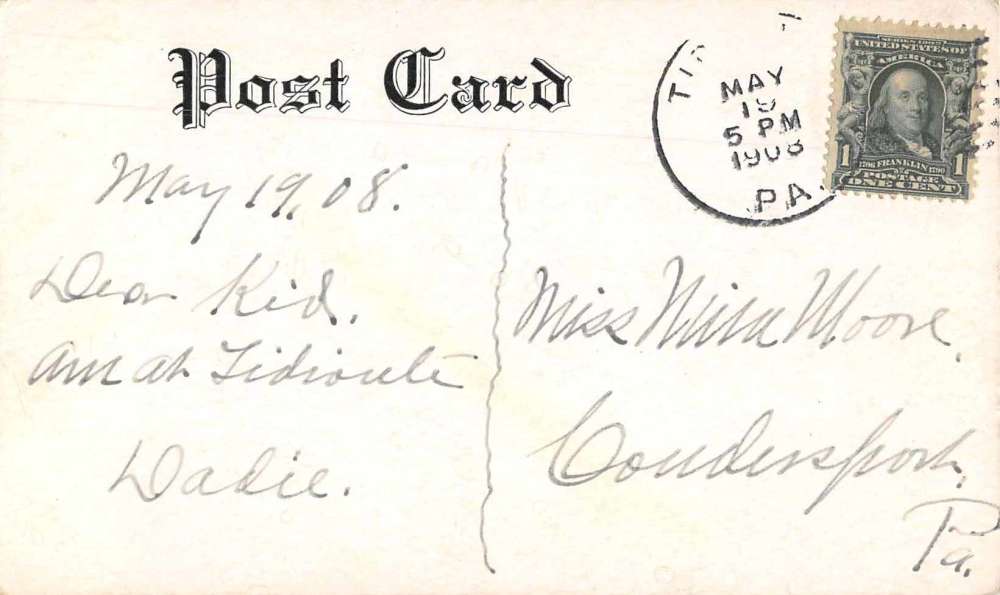 Post Card
MAY
19
5 PM
1908
PA.
SERIES 1902
UNITED STATES OF
AMERICA
1 1706 FRANKLIN 1790 1
POSTAGE
ONE CENT
May 19, 08.
Dear Kid,
am at Tidioute
Dadie.
Miss Nina Moore,
Coudersport,
Pa.